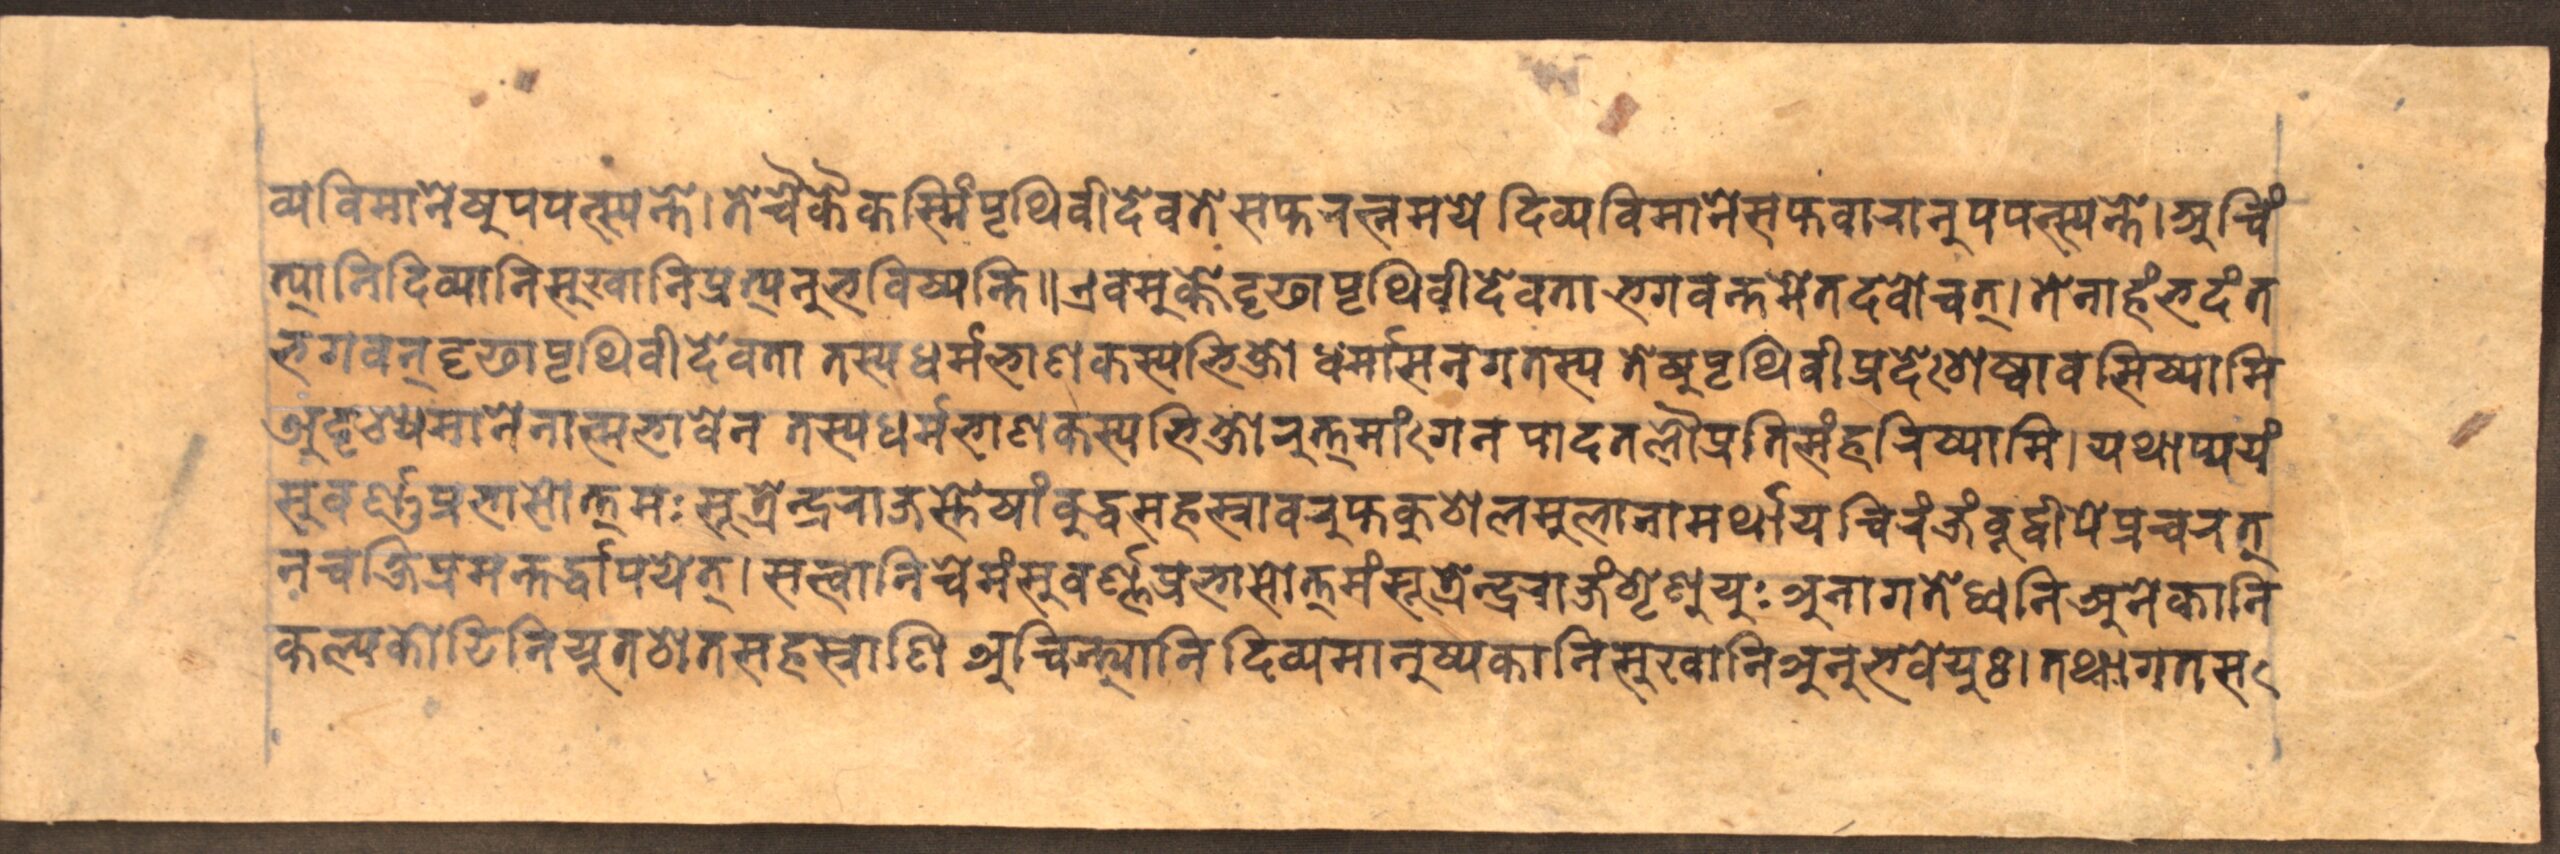 व्यविमानेषुपपत्स्यन्ते। तेचैकैकस्मिंपृथिवीदेवते सप्तरत्नमये दिव्यविमानेसप्तवारानुपपत्स्यन्ते। अचिं
त्यानिदिव्यानिसुखानिप्रत्यनुभविष्यन्ति॥ एवमुक्तेदृढापृथिवीदेवता भगवन्तमेतदवोचत्। तेनाहंभदंत
भगवन्दृढापृथिवीदेवता तस्यधर्मभाणकस्यभिक्षो धर्मासनगतस्य तेषुपृथिवीप्रदेशेष्वावसिष्यामि
अदृश्यमानेनात्मभावेन तस्यधर्मभाणकस्यभिक्षोरुत्तमांगेन पादतलौप्रतिसंहरिष्यामि। यथाप्ययं
सुवर्णप्रभासोत्तमः सूत्रेन्द्रराजस्तेषांबुद्धसहस्रावरुप्तकुशलमुलानामर्थाय चिरंजंबूद्वीपेप्रचरत्
नचक्षिप्रमन्तर्द्धापयेत्। सत्त्वानिचेमंसुवर्ण्णप्रभासोत्तमंसूत्रेन्द्रराजंशृणुयुः अनागतेध्वनिअनेकानि
कल्पकोटिनियुतशतसहस्राणि अचिन्त्यानि दिव्यमानुष्यकानिसुखानिअनुभवेयुः। तथागतस